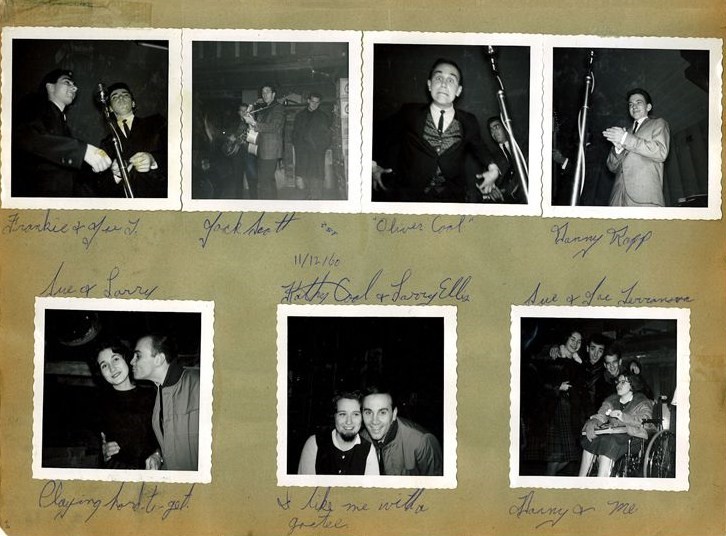 Frankie & Joe T.
Jack Scott
"Oliver Cool"
Danny Rapp
11/12/60
Sue & Larry
Kathy Cool & Larry Ellis
Sue & Joe Terranova
Playing hard-to-get
I like me with a
goatee
Danny & Me